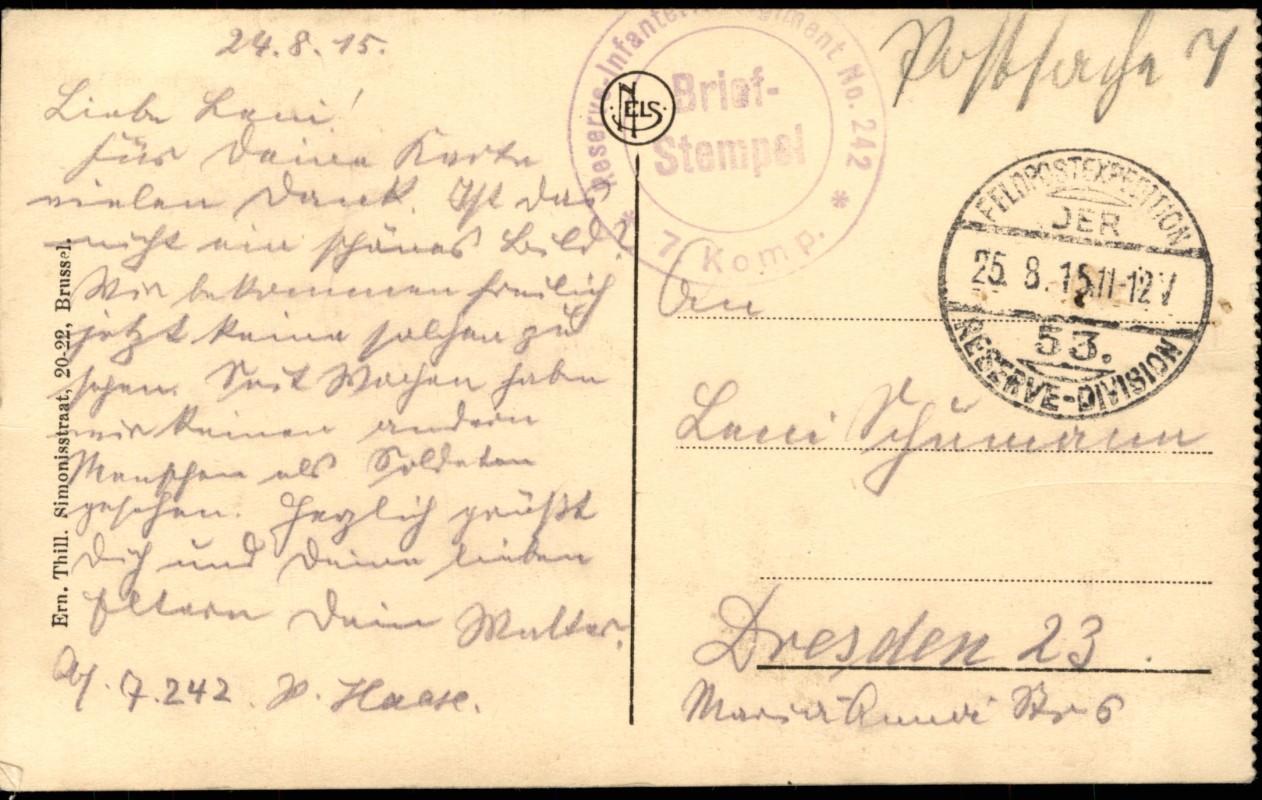 24.8.15.
Liebe Leni!
Für Deine Karte
vielen Dank. Ist das
nicht ein schönes Bild?
Wir bekommen freilich
jetzt keine solchen zu
sehen. Seit Wochen haben
wir keinen andern
Menschen als Soldaten
gesehen. Herzlich grüßt
Dich und Deine lieben
Eltern Dein Walter.
7.242. Haase.
Ern. Thill. Simonisstraat, 20-22, Brussel.
NELS
Reserve-Infanterie-Regiment No. 242
Brief-
Stempel
* 7. Komp. *
FELDPOSTEXPEDITION
DER
25.8.15.11-12V
53.
RESERVE-DIVISION
An
Leni Schumann
Dresden 23.
Str 6